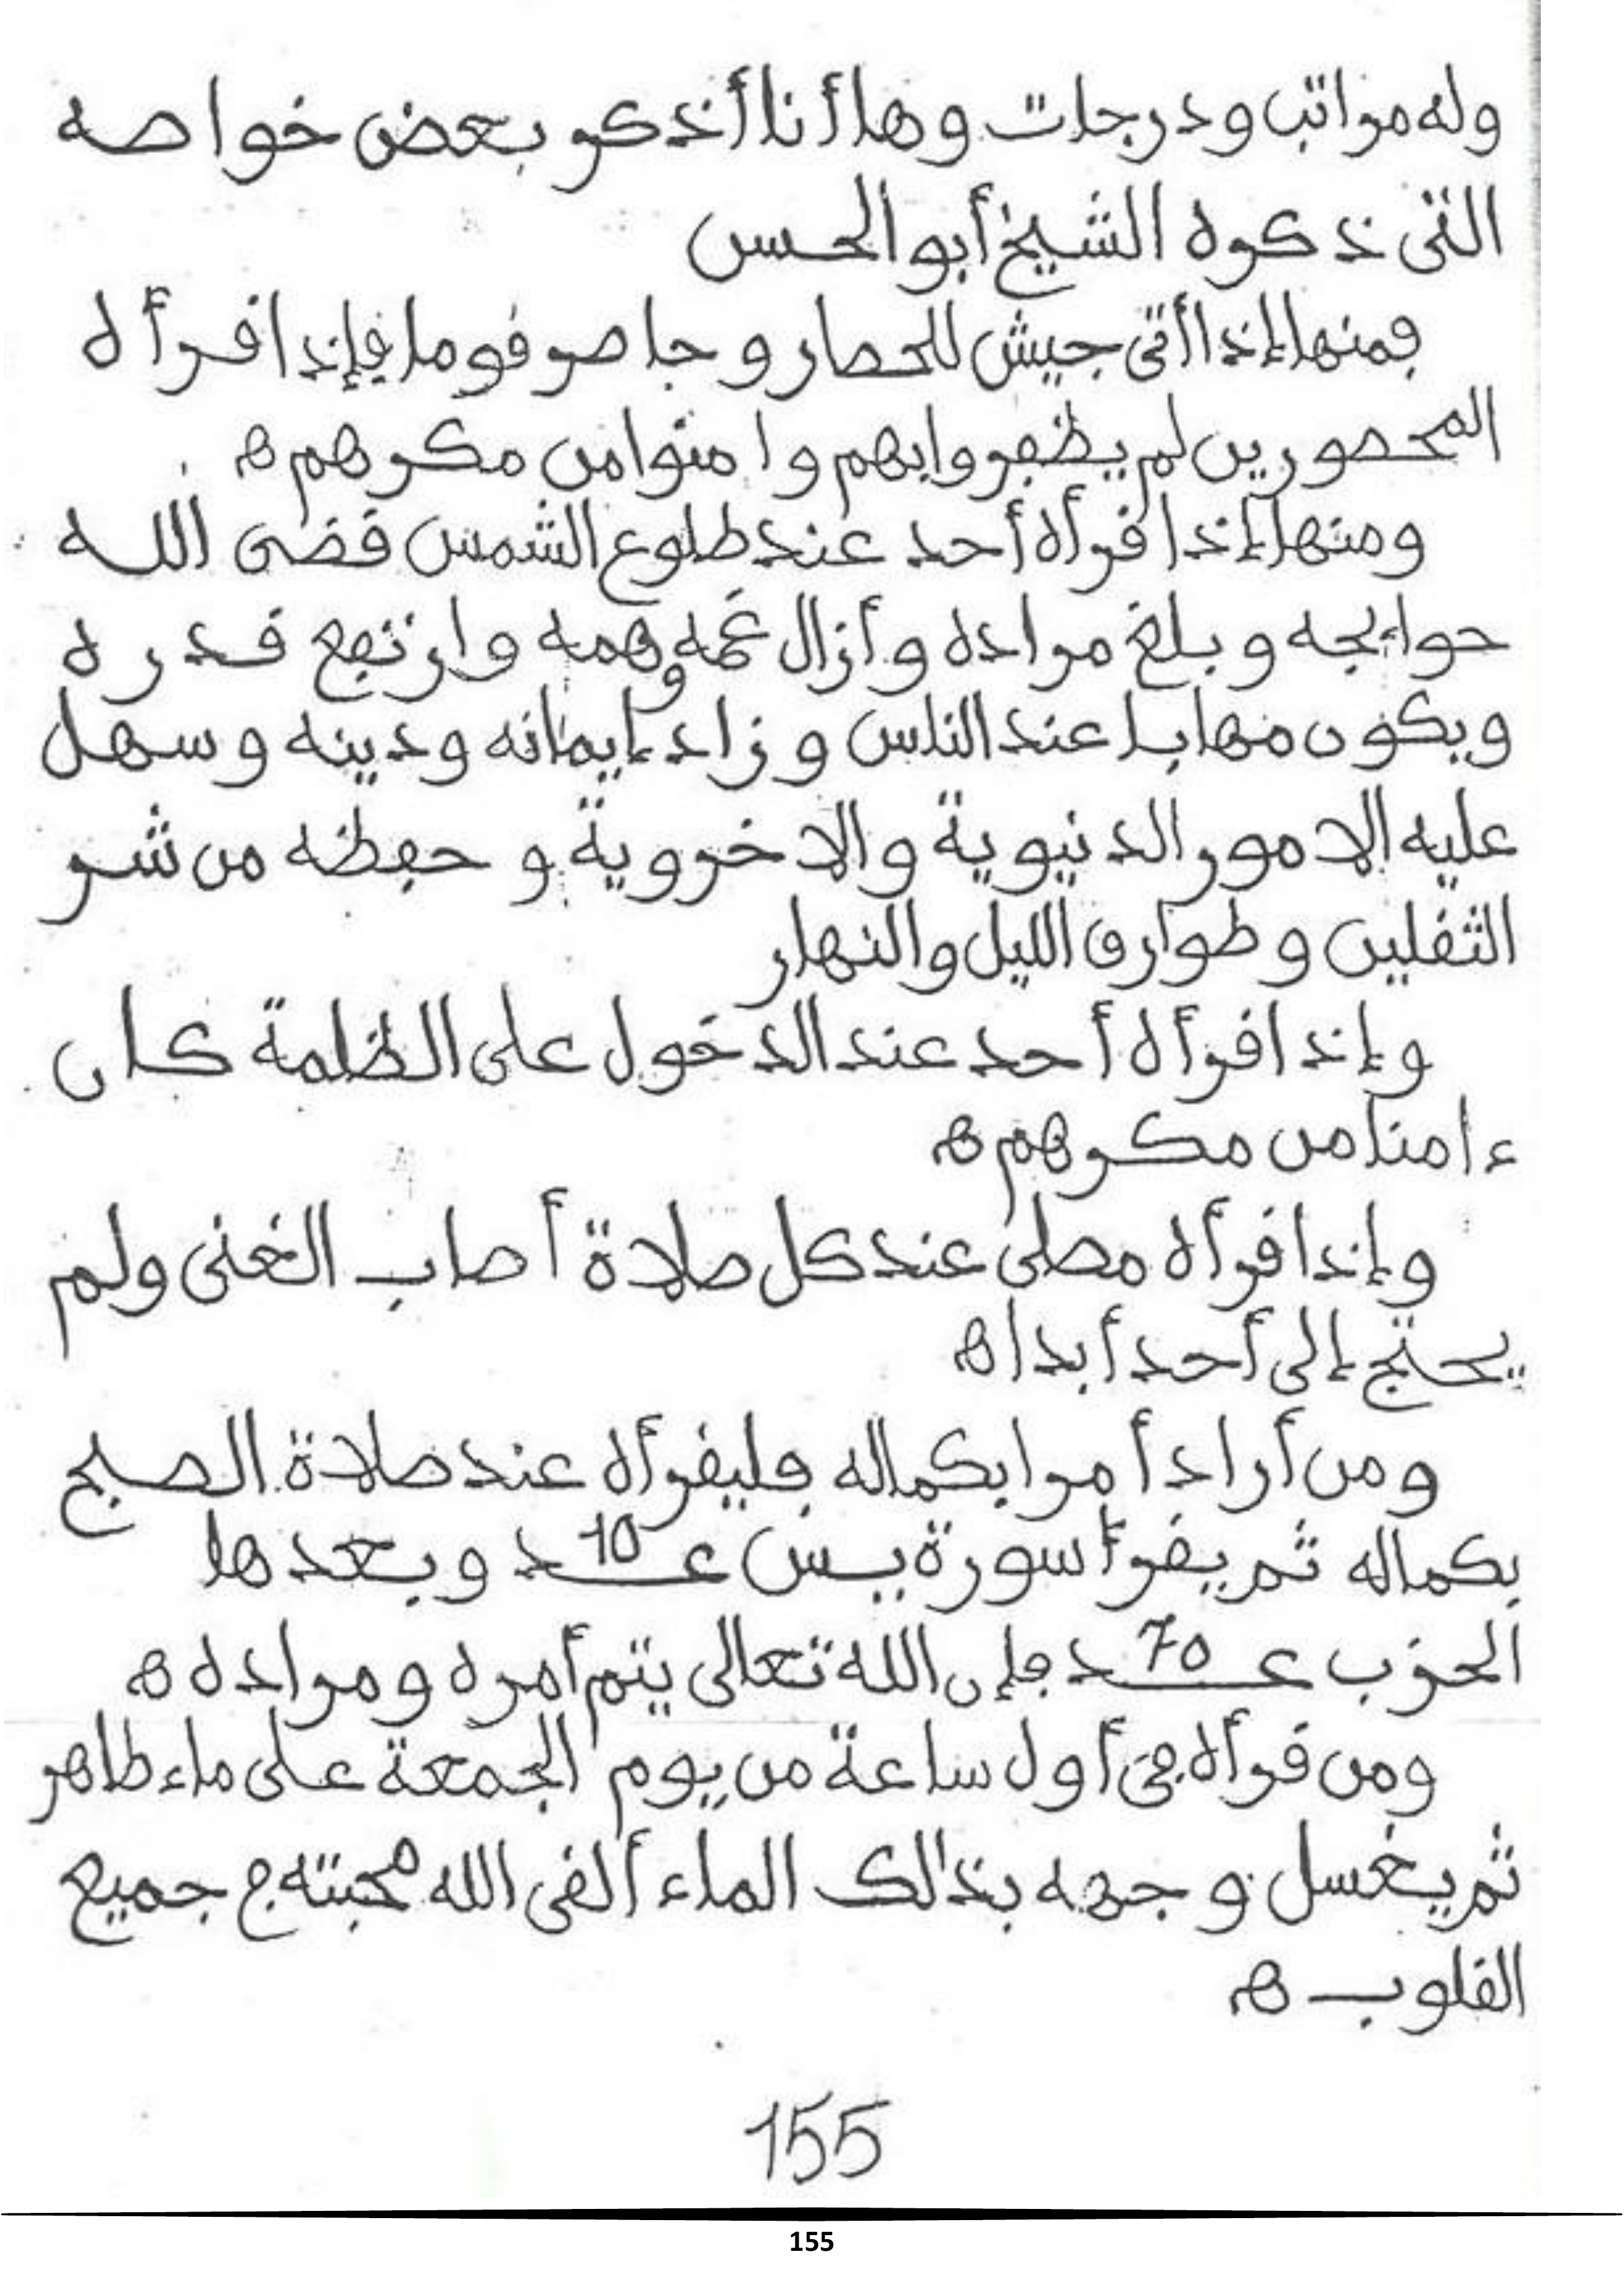 وله مراتب ودرجات وها أنا أذكر بعض خواصه
التى ذكره الشيخ أبو الحسن
فمنها إذا أتى جيش للحصار وحاصر قوما فإذا قرأه
المحصورين لم يظفروا بهم وامنوا من مكرهم ه
ومنها إذا قرأه أحد عند طلوع الشمس قضى الله
حوايجه وبلغ مراده وأزال غمه وهمه وارتفع قدره
ويكون مهابا عند الناس وزاد إيمانه ودينه وسهل
عليه الامور الدنيوية والاخروية و حفظه من شر
الثقلين وطوارق الليل والنهار
وإذا قرأه أحد عند الدخول على الظلمة كان
ءامنا من مكرهم ه
وإذا قرأه مصلى عند كل صلاة أصاب الغنى ولم
يحتج إلى أحد أبدا ه
ومن أراد أمرا بكماله فليقرأه عند صلاة الصبح
بكماله ثم يقرأ سورة يس عــ10ــد وبعدها
الحزب عــ70ــد فإن الله تعالى يتم أمره ومراده ه
ومن قرأه فى أول ساعة من يوم الجمعة على ماء طاهر
ثم يغسل وجهه بذالك الماء ألقى الله محبته ج جميع
القلوب ه
155
155